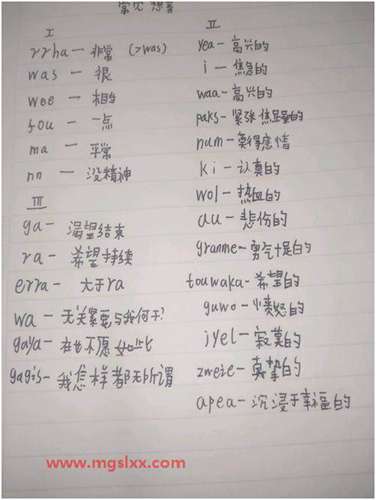 常见 想音
I
rrha — 非常 (>was)
was — 很
wee — 相当
fou — 一点
ma — 平常
nn — 没精神
III
ga — 渴望结束
ra — 希望持续
erra — 大于ra
wa — 无关紧要与我何干?
gaya — 再也不愿如此
gagis — 我怎样都无所谓
II
yea - 高兴的
i - 焦急的
waa - 高兴的
paks - 紧张焦虑的
num - 莫得感情
ki - 认真的
wol - 热血的
au - 悲伤的
granme - 勇气十足的
touwaka - 希望的
guwo - 愤怒的
jyel - 寂寞的
zweie - 真挚的
apea - 沉浸于幸福的
www.mgslxx.com